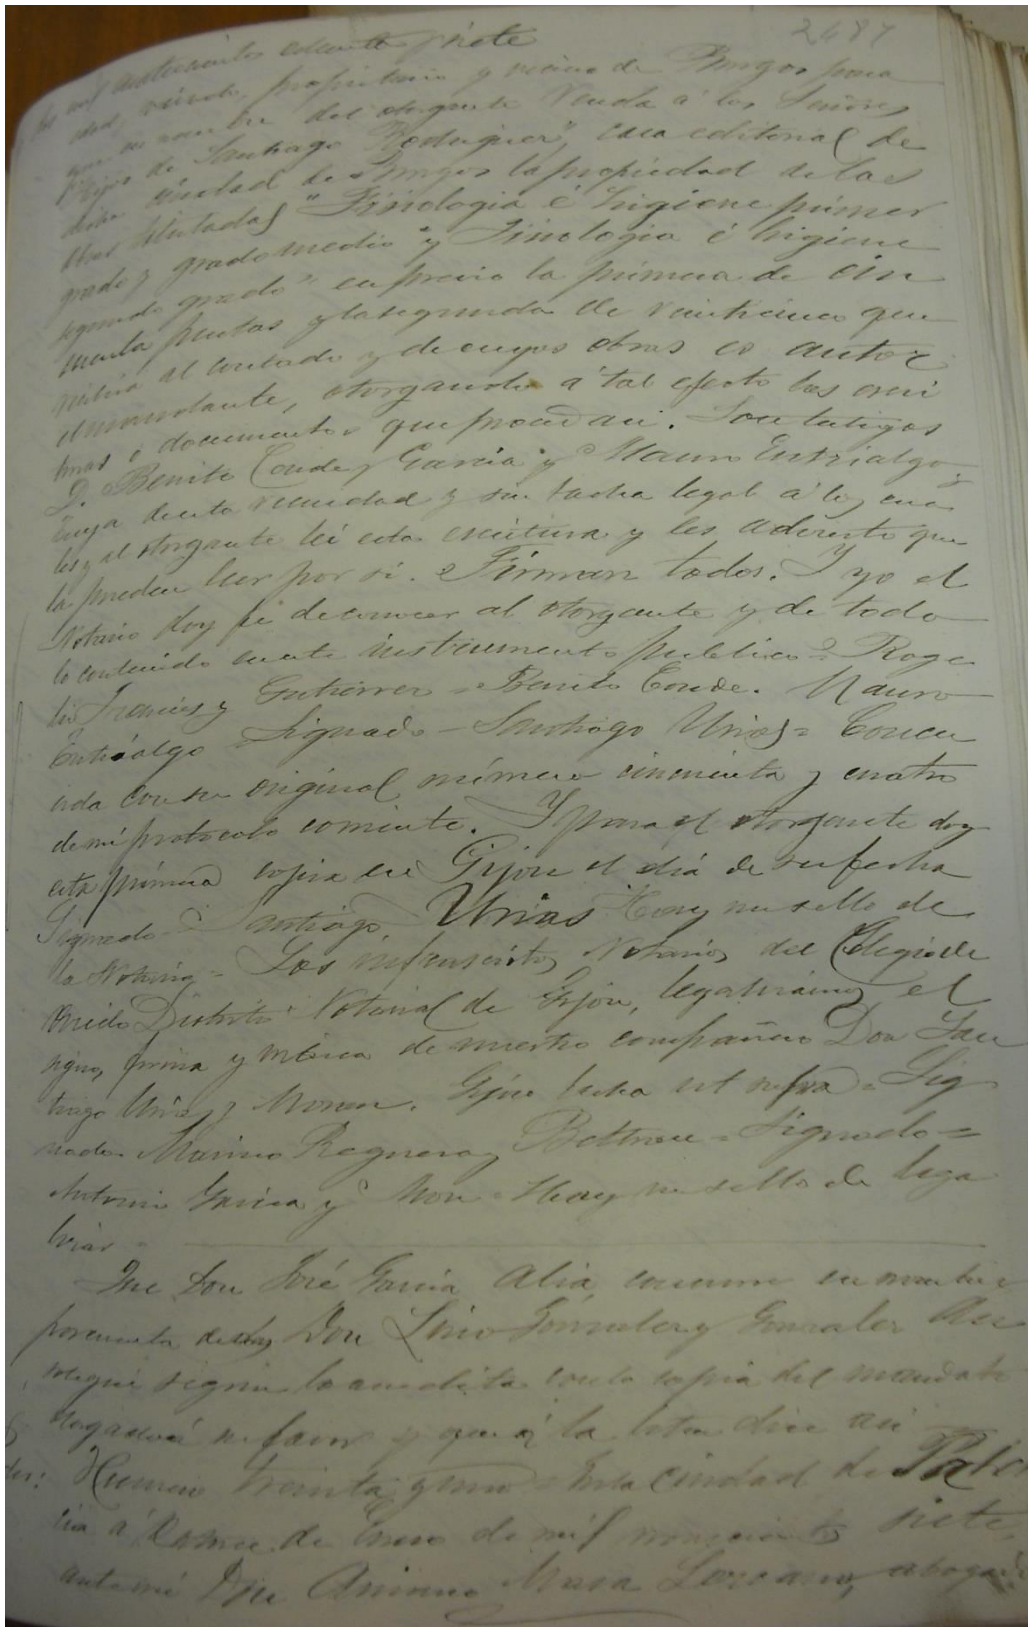 2487
dos mil cuatrocientos ochenta y siete
edad, viudo, propietario y vecino de Burgos para
que en nombre del otorgante Venda á los Señores
Hijos de Santiago Rodriguez, casa editorial de
dicha ciudad de Burgos la propiedad de las
obras tituladas "Fisiologia é higiene primer
grado y grado medio" y Fisiologia é higiene
segundo grado" en precio la primera de cin
cuenta pesetas y la segunda de veinticinco que
recibirá al contado y de cuyas obras es autor
el mandante, otorgando á tal efecto las escri
turas ó documentos que procedan. Son testigos
D. Benito Conde y Garcia y D. Mauro Entrialgo,
de esta vecindad y sin tacha legal á los cua
les y al otorgante leí esta escritura y les advierto que
la pueden leer por si. Firman todos. Y yo el
Notario doy fé de conocer al otorgante y de todo
lo contenido en este instrumento publico = Roge
lio Francés y Gutierrez = Benito Conde. Mauro
Entrialgo = Signado = Santiago Urias = Concu
erda con su original número cincuenta y cuatro
de mi protocolo corriente. Y para el otorgante doy
esta primera copia en Gijon el dia de su fecha
Signado = Santiago Urias Hay un sello de
la Notaria = Los infrascritos Notarios del Colegio de
Oviedo Distrito Notarial de Gijon, legalizamos el
signo, firma y rúbrica de nuestro compañero Don San
tiago Urias y Moran. Gijon fecha ut supra = Sig
nado = Marino Reguera y Beltran = Signado =
Antonio Garcia y Mon = Hay un sello de lega
lizar =
Que Don José Garcia Alia, concurre en nombre
por cuenta de Don Lino Gonzalez y Gonzalez
según lo acredita con la copia del mandato
otorgado á su favor y que á la letra dice asi
Numero treinta y uno = En la ciudad de Palen
cia á de Enero de mil novecientos siete,
ante mi Don Maria Lozcano, abogado